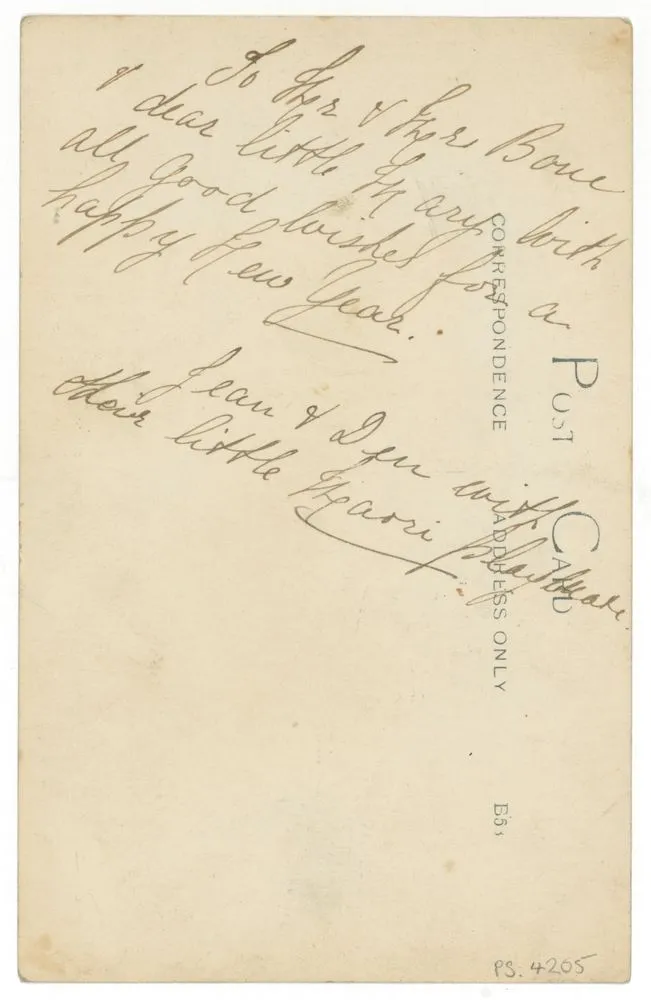 To Mr & Mrs Bone
& dear little Mary with
all good wishes for a
happy New Year.
Jean & Den with
their little Maori playmate.
POST CARD
CORRESPONDENCE
ADDRESS ONLY
PS. 4205